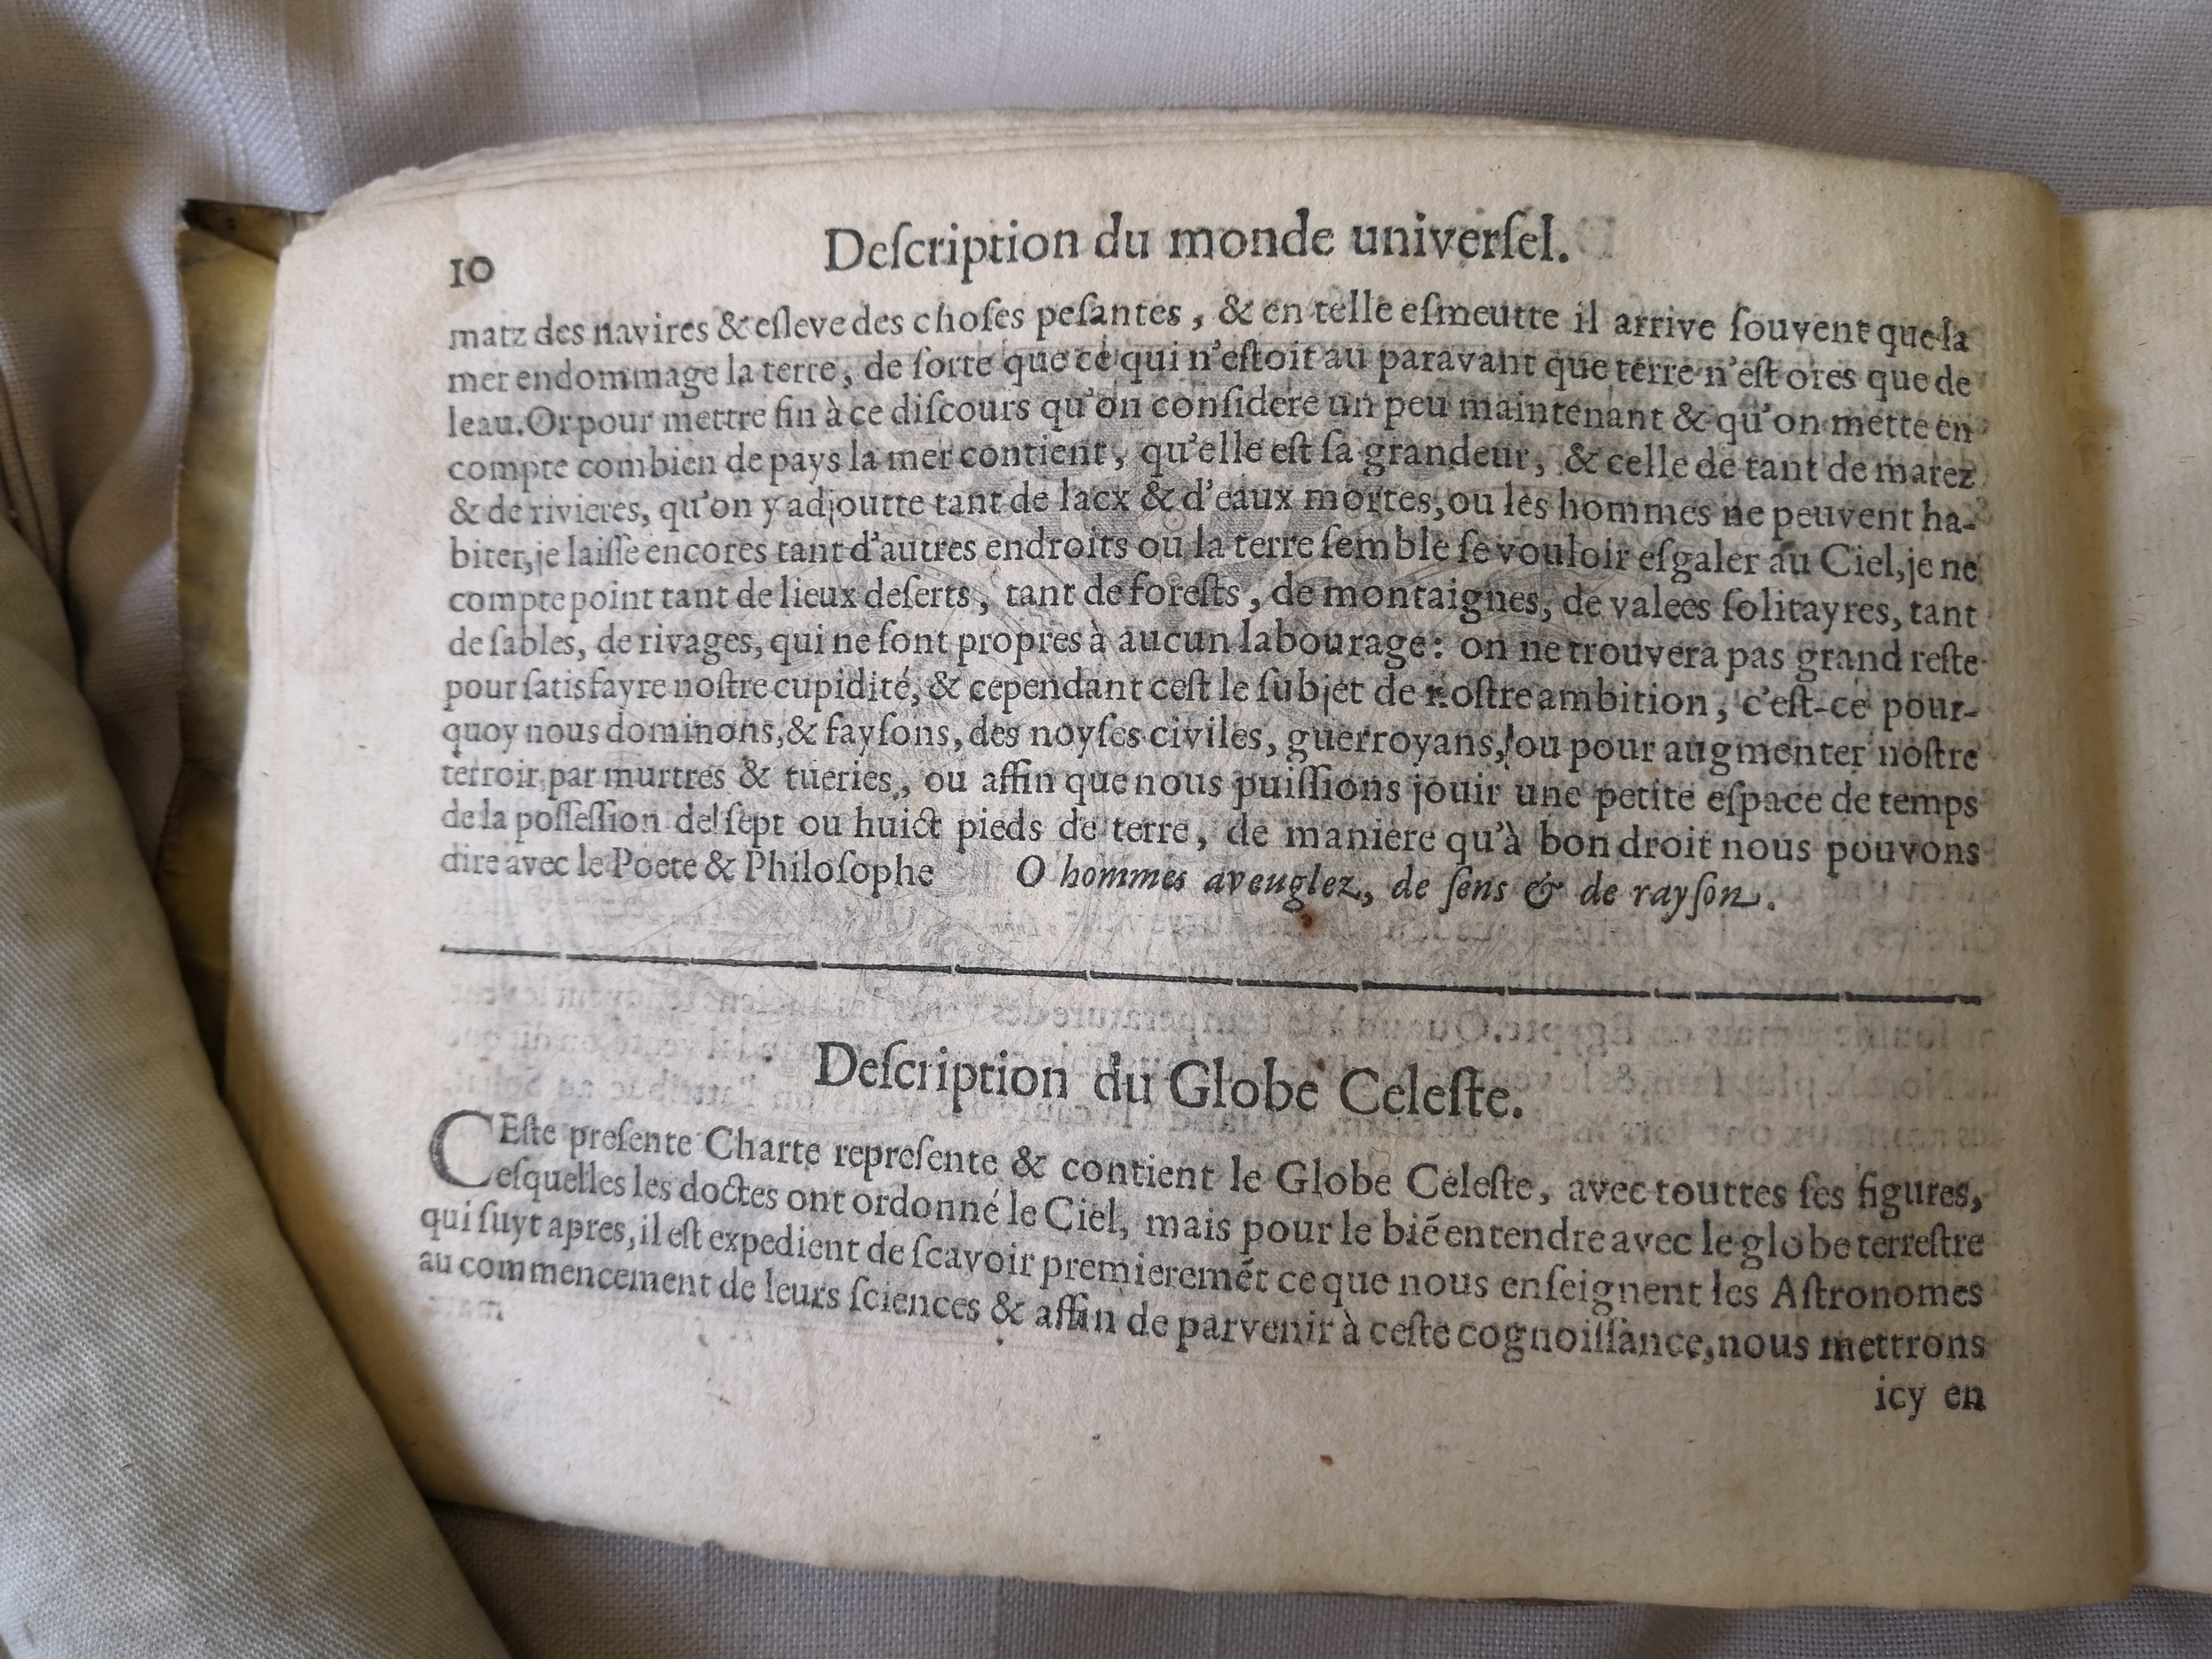 10
Deſcription du monde univerſel.
matz des navires & eſleve des choſes peſantes, & en telle eſmeutte il arrive ſouvent que la
mer endommage la terre, de ſorte que ce qui n'eſtoit au paravant que terre n'eſt ores que de
leau. Or pour mettre fin à ce diſcours qu'on conſidere un peu maintenant & qu'on mette en
compte combien de pays la mer contient, qu'elle eſt ſa grandeur, & celle de tant de marez
& de rivieres, qu'on y adjoutte tant de lacx & d'eaux mortes, ou les hommes ne peuvent ha-
biter, je laiſſe encores tant d'autres endroits ou la terre ſemble ſe vouloir eſgaler au Ciel, je ne
compte point tant de lieux deſerts, tant de foreſts, de montaignes, de valees ſolitayres, tant
de ſables, de rivages, qui ne ſont propres à aucun labourage: on ne trouvera pas grand reſte
pour ſatisfayre noſtre cupidité, & cependant ceſt le ſubjet de noſtre ambition, c'eſt-ce pour-
quoy nous dominons, & fayſons, des noyſes civiles, guerroyans, ou pour augmenter noſtre
terroir par murtres & tueries, ou affin que nous puiſſions jouir une petite eſpace de temps
de la poſſeſſion de ſept ou huict pieds de terre, de maniere qu'à bon droit nous pouvons
dire avec le Poete & Philoſophe O hommes aveuglez, de ſens & de rayſon.
Deſcription du Globe Celeſte.
CEſte preſente Charte repreſente & contient le Globe Celeſte, avec touttes ſes figures,
eſquelles les doctes ont ordonné le Ciel, mais pour le biē entendre avec le globe terreſtre
qui ſuyt apres, il eſt expedient de ſcavoir premieremēt ce que nous enſeignent les Aſtronomes
au commencement de leurs ſciences & affin de parvenir à ceſte cognoiſſance, nous mettrons
icy en